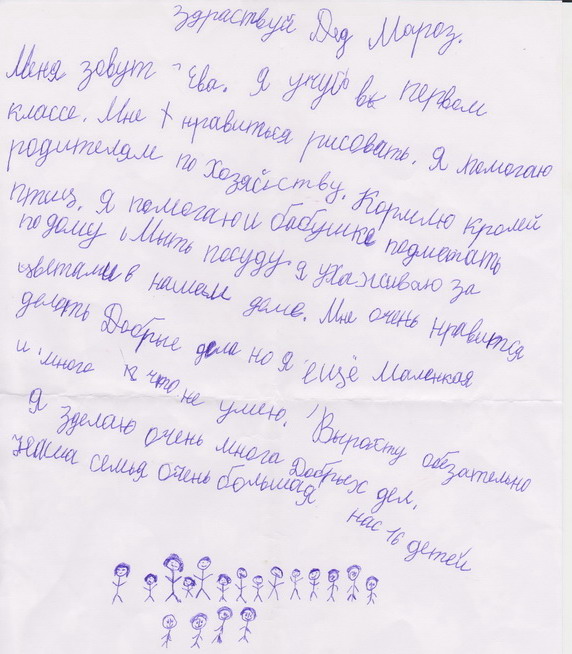 Здраствуй Дед Мароз.
Меня зовут Ева. Я учусь вк первом
классе. Мне нравиться рисовать. Я помогаю
родителям по хозяйству. Кормлю кролей
птиц. Я помогаю и бабушке подметать
по дому, Мыть посуду я ухаживаю за
цветами в нашем доме. Мне очень нравится
делать Добрые дела но я ещё Маленкая
и многа что не умею. Вырасту обезательно
Я зделаю очень многа Добрых дел.
Наша семья очень большая нас 16 детей